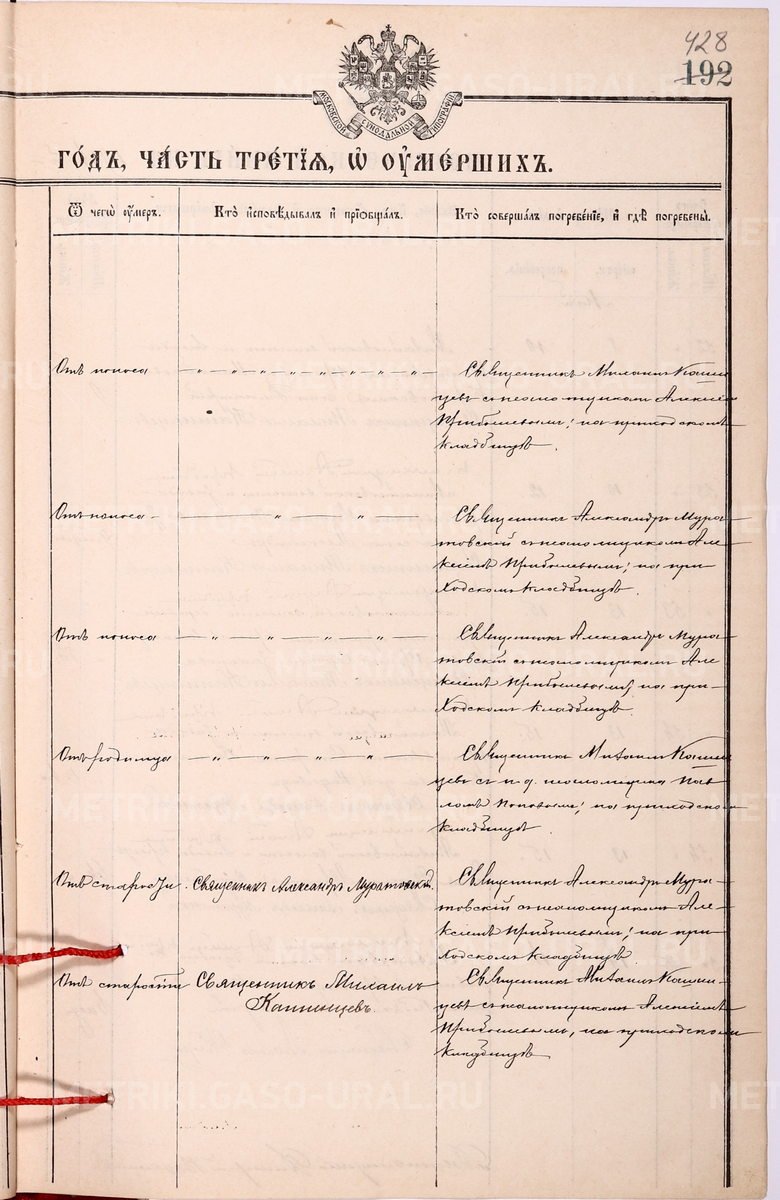 428
192
МОСКОВСКОЙ СѴНОДАЛЬНОЙ ТИПОГРАФІИ
ГОДЪ, ЧАСТЬ ТРЕТІЯ, Ѡ ОУМЕРШИХЪ.
Ѿ чегѡ оумеръ.
Кто исповѣдывалъ и пріобщалъ.
Кто совершалъ погребеніе, и гдѣ погребены.
Отъ поноса
Священникъ Михаилъ Кашин
цевъ съ псаломщикомъ Алексіемъ
Прибылевымъ; на приходскомъ
кладбищѣ.
Отъ поноса
Священникъ Александръ Мура
товскій съ псаломщикомъ Але
ксіемъ Прибылевымъ; на при
ходскомъ кладбищѣ.
Отъ поноса
Священникъ Александръ Мура
товскій съ псаломщикомъ Але
ксіемъ Прибылевымъ, на при-
ходскомъ кладбищѣ.
Отъ родимца
Священникъ Михаилъ Кашин
цевъ съ и. д. псаломщика Пав
ломъ Поповымъ; на приходском
кладбищѣ.
Отъ старости
Священникъ Александръ Муратовскій.
Священникъ Александръ Мура-
товскій съ псаломщикомъ Але-
ксіемъ Прибылевымъ; на при-
ходскомъ кладбищѣ.
Отъ старости
Священникъ Михаилъ
Кашинцевъ.
Священникъ Михаилъ Кашин-
цевъ съ псаломщикомъ Алексіемъ
Прибылевымъ, на приходском
кладбищѣ
METRIKI.GASO-URAL.RU